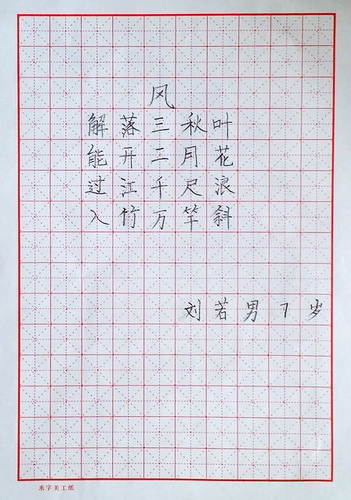 风
解落三秋叶
能开二月花
过江千尺浪
入竹万竿斜
刘若男7岁
米字美工纸